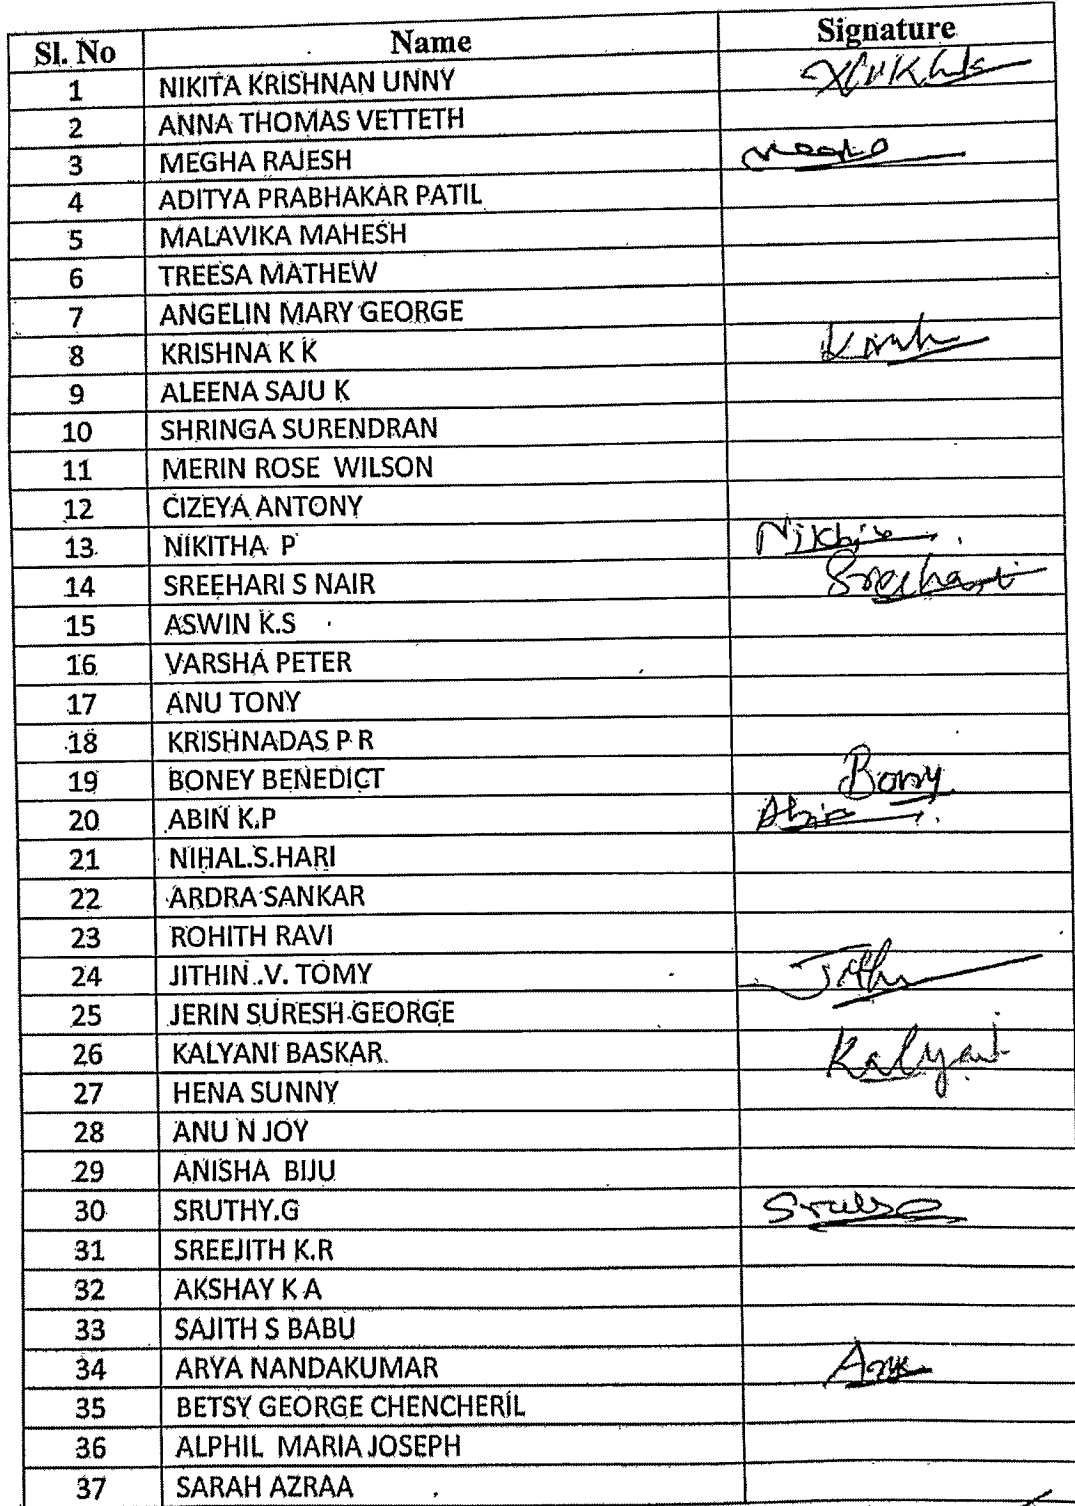 Sl. No Name Signature
1 NIKITA KRISHNAN UNNY
2 ANNA THOMAS VETTETH
3 MEGHA RAJESH Megha
4 ADITYA PRABHAKAR PATIL
5 MALAVIKA MAHESH
6 TREESA MATHEW
7 ANGELIN MARY GEORGE
8 KRISHNA K K
9 ALEENA SAJU K
10 SHRINGA SURENDRAN
11 MERIN ROSE WILSON
12 CIZEYA ANTONY
13 NIKITHA P
14 SREEHARI S NAIR Sreehari
15 ASWIN K.S
16 VARSHA PETER
17 ANU TONY
18 KRISHNADAS P R
19 BONEY BENEDICT Bony
20 ABIN K.P Abin
21 NIHAL.S.HARI
22 ARDRA SANKAR
23 ROHITH RAVI
24 JITHIN .V. TOMY
25 JERIN SURESH GEORGE
26 KALYANI BASKAR Kalyani
27 HENA SUNNY
28 ANU N JOY
29 ANISHA BIJU
30 SRUTHY.G
31 SREEJITH K.R
32 AKSHAY K A
33 SAJITH S BABU
34 ARYA NANDAKUMAR Arya
35 BETSY GEORGE CHENCHERIL
36 ALPHIL MARIA JOSEPH
37 SARAH AZRAA